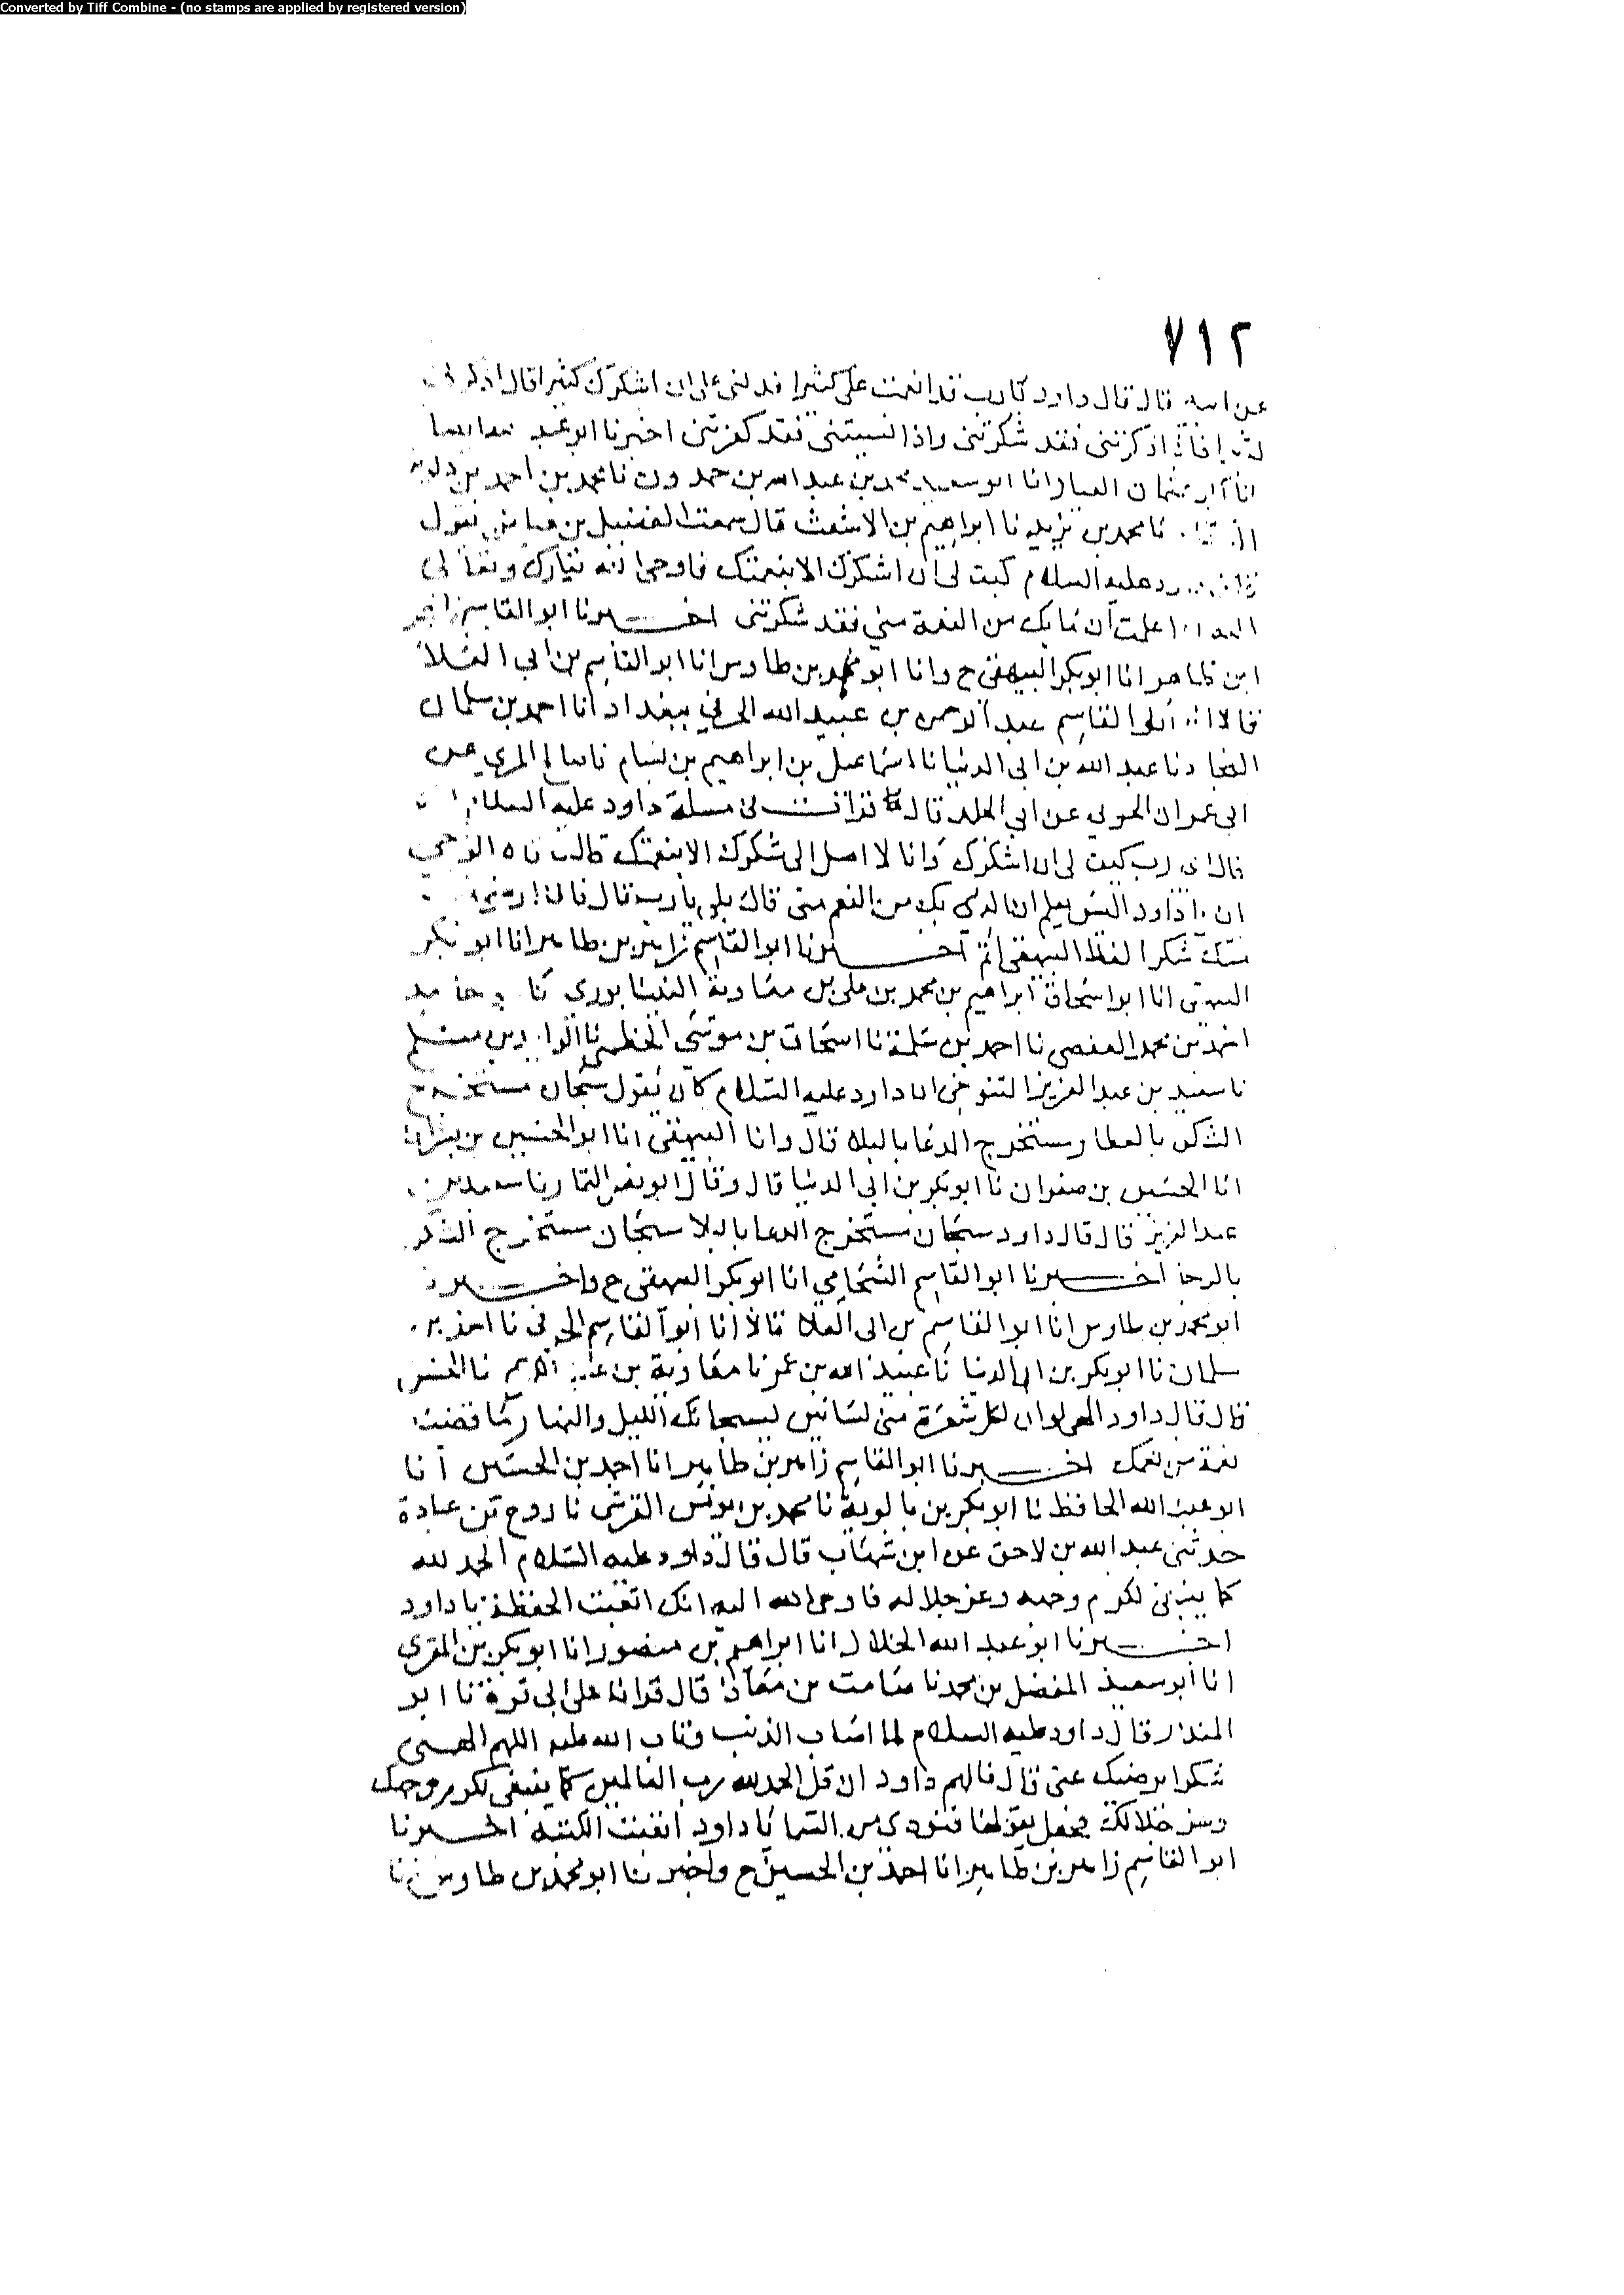 Converted by Tiff Combine - (no stamps are applied by registered version)
٧١٢
عن ابيه قال قال داود يارب قد انعمت علي كثيرا فدلني على ان اشكرك كثيرا قال
فاذا ذكرتني فقد شكرتني واذا نسيتني فقد كفرتني اخبرنا ابو محمد
انا ابو عثمان العيار انا ابو سعيد محمد بن عبد الله بن حمدون نا محمد بن احمد بن دلويه
نا محمد بن يزيد نا ابراهيم بن الاشعث قال سمعت الفضيل بن عياض يقول
عليه السلام كيف لي ان اشكرك الا بنعمتك فاوحى الله تبارك وتعالى
علمت ان ما بك من النعمة مني فقد شكرتني اخبرنا ابو القاسم زاهر
ابن طاهر انا ابو بكر البيهقي ح وانا ابو محمد بن طاوس انا ابو القاسم بن ابي العلا
قالا انا ابو القاسم عبد الرحمن بن عبيد الله الحرفي ببغداد انا احمد بن سلمان
النجاد نا عبد الله بن ابي الدنيا نا اسماعيل بن ابراهيم بن بسام نا صالح المري عن
ابي عمران الجوني عن ابي الجلد قال قرات في مسلة داود عليه السلام
قال اي رب كيف لي ان اشكرك وانا لا اصل الى شكرك الا بنعمتك قال فاتاه الوحي
ان يا داود اليس تعلم ان الذي بك من النعم مني قال بلى يا رب قال فاني ارضى
منك شكرا لفظ البيهقي اتم اخبرنا ابو القاسم زاهر بن طاهر انا ابو بكر
البيهقي انا ابو اسحاق ابراهيم بن محمد بن علي بن معاوية النيسابوري نا حامد
احمد بن محمد العفصي نا احمد بن سلمة نا اسحاق بن موسى الخطمي نا الوليد بن مسلم
نا سعيد بن عبد العزيز التنوخي ان داود عليه السلام كان يقول سبحان مستخرج
الشكر بالعطا ومستخرج الدعا بالبلا قال وانا البيهقي انا ابو الحسين بن بشران
انا الحسين بن صفوان نا ابو بكر بن ابي الدنيا قال وقال ابو نصر التمار نا سعيد بن
عبد العزيز قال قال داود سبحان مستخرج الدعا بالبلا سبحان مستخرج الشكر
بالرخا اخبرنا ابو القاسم الشحامي انا ابو بكر البيهقي ح واخبرنا
ابو محمد بن طاوس انا ابو القاسم بن ابي العلا قالا انا ابو القاسم الحرفي نا احمد بن
سلمان نا ابو بكر بن ابي الدنيا نا عبيد الله بن عمر نا معاوية بن عبد الكريم نا الحسن
قال قال داود الهي لو ان لكل شعرة مني لسانين يسبحانك الليل والنهار ما قضيت
نعمة من نعمك اخبرنا ابو القاسم زاهر بن طاهر انا احمد بن الحسين انا
ابو عبد الله الحافظ نا ابو بكر بن بالوية نا محمد بن يونس القرشي نا روح بن عبادة
حدثني عبد الله بن لاحق عن ابن شهاب قال قال داود عليه السلام الحمد لله
كما ينبغي لكرم وجهه وعز جلاله فاوحى الله اليه انك اتعبت الحفظة يا داود
اخبرنا ابو عبد الله الخلال انا ابراهيم بن منصور انا ابو بكر بن المقري
انا ابو سعيد المفضل بن محمد نا صامت بن معاذ قال قرانا على ابي قرة نا ابو
المنذر قال داود عليه السلام لما اصاب الذنب وتاب الله عليه اللهم الهمني
شكرا يرضيك عني قال فالهم داود ان قل الحمد لله رب العالمين كما ينبغي لكرم وجهك
وعز جلالك فجعل يقولها فنودي من السما يا داود اتعبت الكتبة اخبرنا
ابو القاسم زاهر بن طاهر انا احمد بن الحسين ح واخبرنا ابو محمد بن طاوس